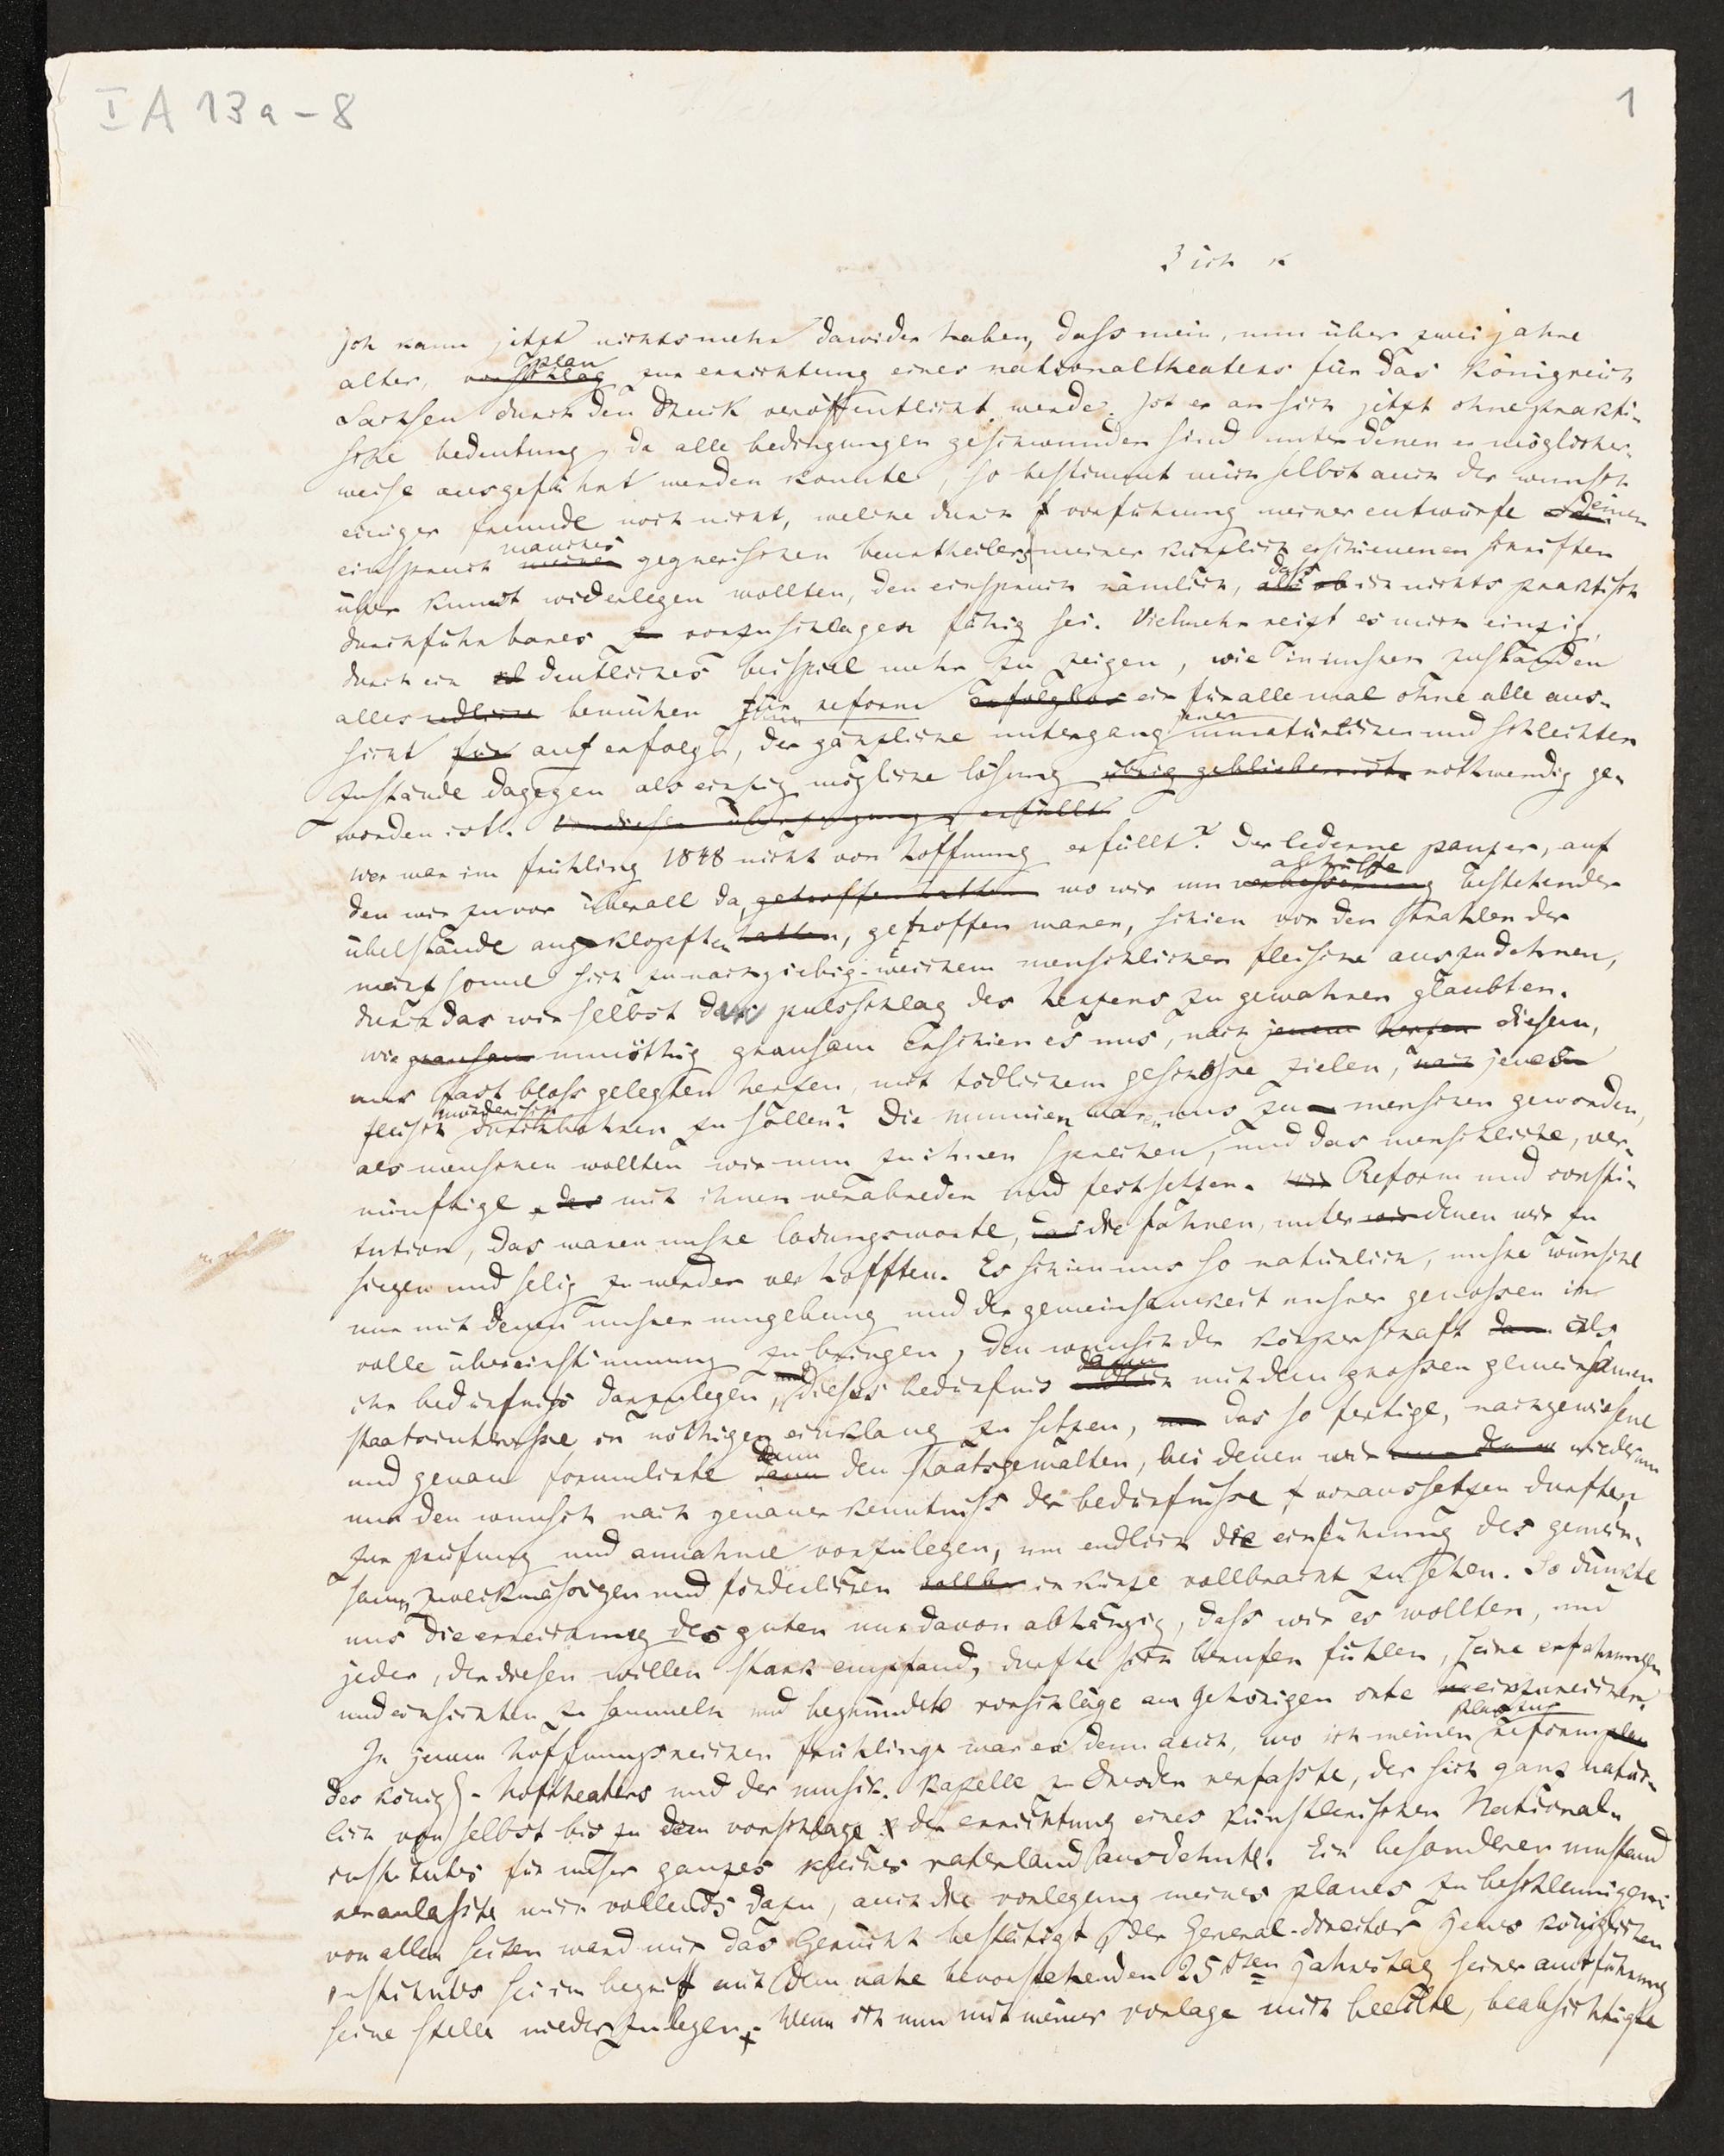 I A 13a-8
1
Zürich
Ich kann jetzt nichts mehr dawider haben, dass mein, nun über zwei jahre
alter, vorschlag plan zur errichtung eines nationaltheaters für das Königreich
Sachsen durch den Druck veröffentlicht werde. Ist er an sich jetzt ohne prakti-
sche bedeutung, da alle bedingungen geschwunden sind unter denen er möglicher-
weise ausgeführt werden konnte, so bestimmt mich selbst auch der wunsch
einiger freunde noch nicht, welche durch vorführung meiner entwürfe einen
einspruch manches gegnerischen beurtheilers meiner kürzlich erschienenen schriften
über kunst widerlegen wollten, den einspruch nämlich, als ob dass ich nichts praktisch
durchführbares vorzuschlagen fähig sei. Vielmehr reizt es mich einzig,
durch ein deutliches beispiel mehr zu zeigen, wie in unsren zuständen
alles redliche bemühen für reform erfolglos ein für alle mal ohne alle aus-
sicht für auf erfolg, der gänzliche untergang jener unnatürlichen und schlechten
zustände dagegen als einzig mögliche lösung übrig geblieben ist nothwendig ge-
worden ist. Von dieser überzeugung erfüllt
Wer war im frühling 1848 nicht von hoffnung erfüllt? Der lederne panzer, auf
den wir zuvor überall da, getroffen hatten wo wir um verbesserung abhülfe bestehender
übelstände angeklopft hatten, getroffen waren, schien vor den strahlen der
märzsonne sich zu nachgiebig-weichem menschlichen fleische auszudehnen,
durch das wir selbst den pulsschlag des herzens zu gewahren glaubten.
Wie grausam unnöthig grausam erschien es uns, nach jenem herzen diesem,
uns fast bloss gelegten herzen, mit tödlichem geschosse zielen, nach jenes
fleisch mörderisch durchbohren zu sollen? Die mumien waren uns zu menschen geworden,
als menschen wollten wir nun zu ihnen sprechen, und das menschliche, ver-
nünftige, das mit ihnen verabreden und festsetzen. Reform und consti-
tution, das waren unsre losungsworte, das die fahnen, unter denen wir zu
siegen und selig zu werden verhofften. Es schien uns so natürlich, unsre wünsche
nur mit denen unsrer umgebung und der gemeinsamkeit unsrer genossen in
volle übereinstimmung zu bringen, den wunsch der körperschaft dann als
ihr bedürfniss darzulegen, und dieses bedürfnis endlich dann mit dem grossen gemeinsamen
staatsinteresse in nöthigen einklang zu setzen, das so fertige, nachgewiesene
und genau formulirte dann den staatsgewalten, bei denen wir wiederum
nur den wunsch nach genauer kenntniss der bedürfnisse voraussetzen durften,
zur prüfung und annahme vorzulegen, um endlich die einführung des gemein-
sam zweckmässigen und förderlichen in kürze vollbracht zu sehen. So dünkte
uns die erreichung des guten nur davon abhängig, dass wir es wollten, und
jeder, der diesen willen stark empfand, durfte sich berufen fühlen, seine erfahrungen
und einsichten zu sammeln und begründete vorschläge am gehörigen orte einzureichen.
In jenem hoffnungsreichen frühlinge war es denn auch, wo ich meinen plan zur reform plan
des königl. hoftheaters und der musik. kapelle zu Dresden verfasste, der sich ganz natür-
lich von selbst bis zu dem vorschlage der errichtung eines künstlerischen National-
institutes für unser ganzes kleines vaterland ausdehnte. Ein besonderer umstand
veranlasste mich vollends dazu, auch die vorlegung meines planes zu beschleunigen:
von allen seiten ward mir das Gerücht bestätigt, der General-director jenes königlichen
institutes sei im begriff mit dem nahe bevorstehenden 25sten jahrestag seiner amtsführung
seine stelle niederzulegen. Wenn ich nun mit meiner vorlage mich beeilte, beabsichtigte